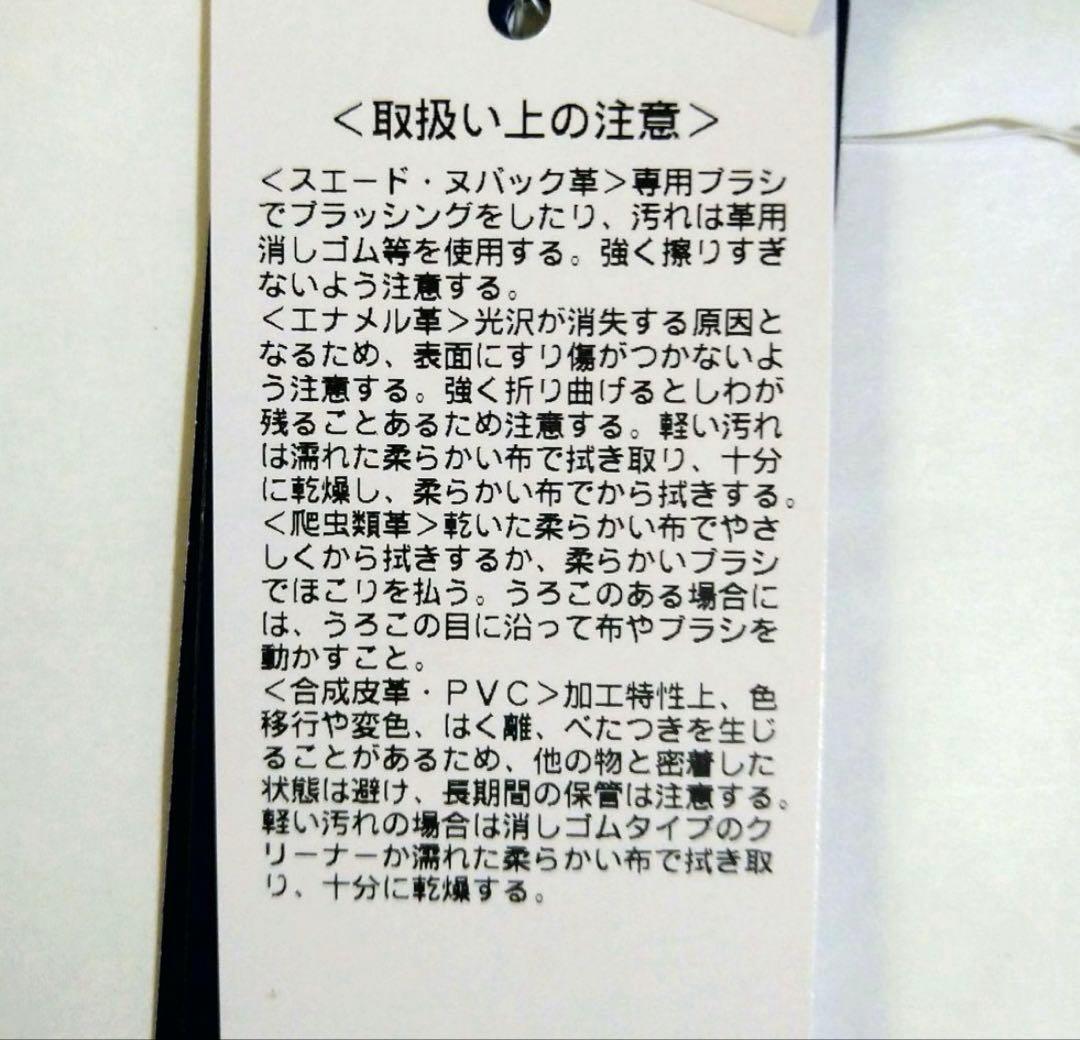 ＜取扱い上の注意＞
＜スエード・ヌバック革＞専用ブラシ
でブラッシングをしたり、汚れは革用
消しゴム等を使用する。強く擦りすぎ
ないよう注意する。
＜エナメル革＞光沢が消失する原因と
なるため、表面にすり傷がつかないよ
う注意する。強く折り曲げるとしわが
残ることあるため注意する。軽い汚れ
は濡れた柔らかい布で拭き取り、十分
に乾燥し、柔らかい布でから拭きする。
＜爬虫類革＞乾いた柔らかい布でやさ
しくから拭きするか、柔らかいブラシ
でほこりを払う。うろこのある場合に
は、うろこの目に沿って布やブラシを
動かすこと。
＜合成皮革・ＰＶＣ＞加工特性上、色
移行や変色、はく離、べたつきを生じ
ることがあるため、他の物と密着した
状態は避け、長期間の保管は注意する。
軽い汚れの場合は消しゴムタイプのク
リーナーか濡れた柔らかい布で拭き取
り、十分に乾燥する。